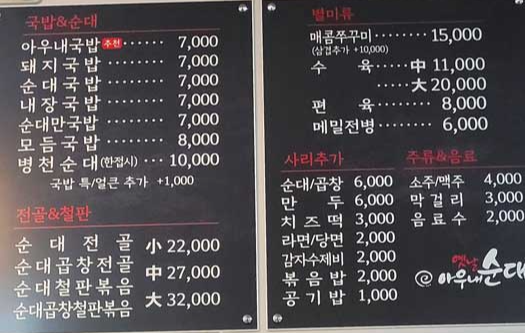 국밥&순대
아우내국밥 추천 ······ 7,000
돼지국밥 ········ 7,000
순대국밥 ········ 7,000
내장국밥 ········ 7,000
순대만국밥 ······ 7,000
모듬국밥 ········ 8,000
병천순대(한접시) ··· 10,000
국밥 특/얼큰 추가 +1,000
전골&철판
순대전골 小 22,000
순대곱창전골 中 27,000
순대철판볶음 大 32,000
순대곱창철판볶음
별미류
매콤쭈꾸미 ········ 15,000
(삼겹추가 +10,000)
수육 ····· 中 11,000
····· 大 20,000
편육 ········ 8,000
메밀전병 ········ 6,000
사리추가
순대/곱창 6,000
만두 6,000
치즈떡 3,000
라면/당면 2,000
감자수제비 2,000
볶음밥 2,000
공기밥 1,000
주류&음료
소주/맥주 4,000
막걸리 3,000
음료수 2,000
옛날
아우내순대